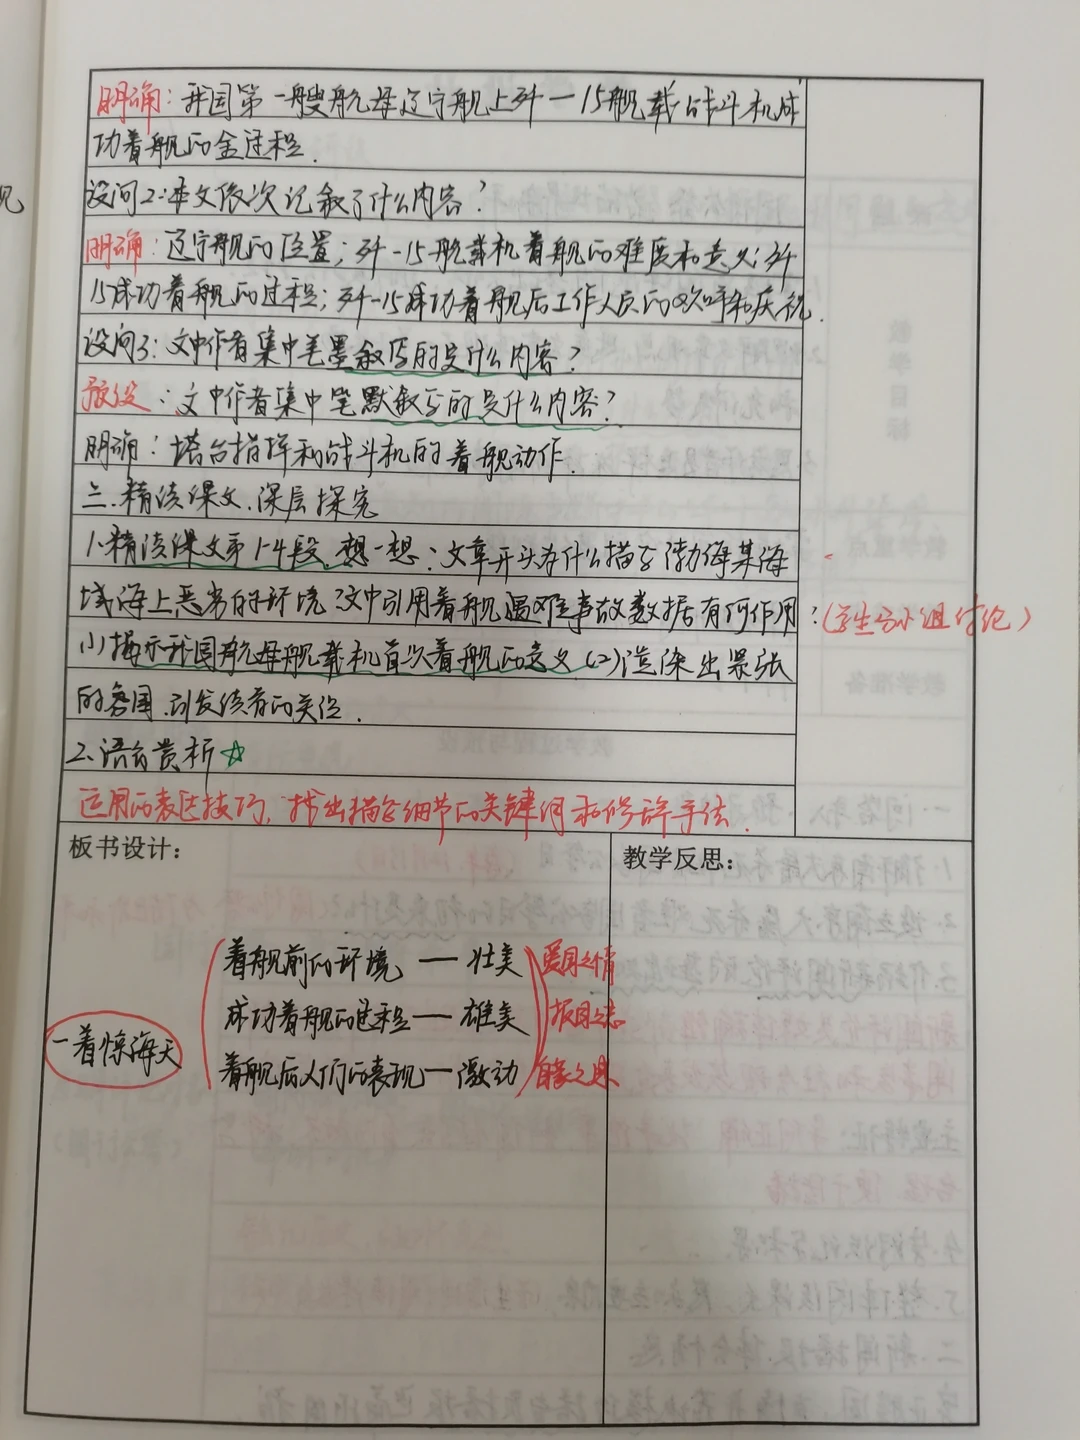 明确：我国第一艘航母辽宁舰上歼—15舰载战斗机成
功着舰的全过程.
设问2：本文依次记叙了什么内容？
明确：辽宁舰的位置；歼-15舰载机着舰的难度和意义；歼
15成功着舰的过程；歼-15成功着舰后工作人员的欢呼和庆祝.
设问3：文中作者集中笔墨叙写的是什么内容？
预设：文中作者集中笔默叙写的是什么内容？
明确：塔台指挥和战斗机的着舰动作.
三.精读课文.深层探究
1.精读课文第1-4段.想一想：文章开头为什么描写渤海某海
域海上恶劣的环境？文中引用着舰遇难事故数据有何作用？（学生分小组讨论）
(1)揭示我国航母舰载机首次着舰的意义.(2)渲染出紧张
的氛围.引发读者的关注.
2.语言赏析☆
运用的表达技巧，找出描写细节的关键词和修辞手法.
板书设计：
教学反思：
一着惊海天
着舰前的环境 — 壮美 爱国之情
成功着舰的过程 — 雄美 报国之志
着舰后人们的表现 — 激动 自豪之恩